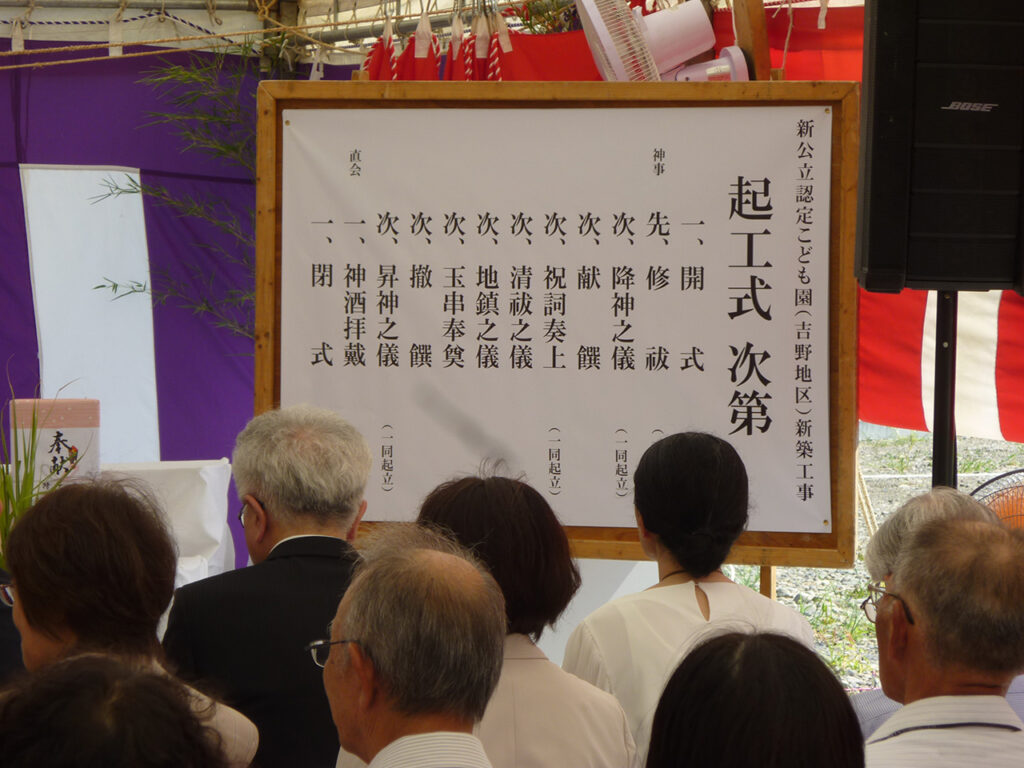 新公立認定こども園(吉野地区)新築工事
起工式 次第
一、開式
神事
先、修祓
次、降神之儀(一同起立)
次、献饌
次、祝詞奏上(一同起立)
次、清祓之儀
次、地鎮之儀
次、玉串奉奠
次、撤饌
次、昇神之儀(一同起立)
直会
一、神酒拝戴
一、閉式
BOSE
奉献